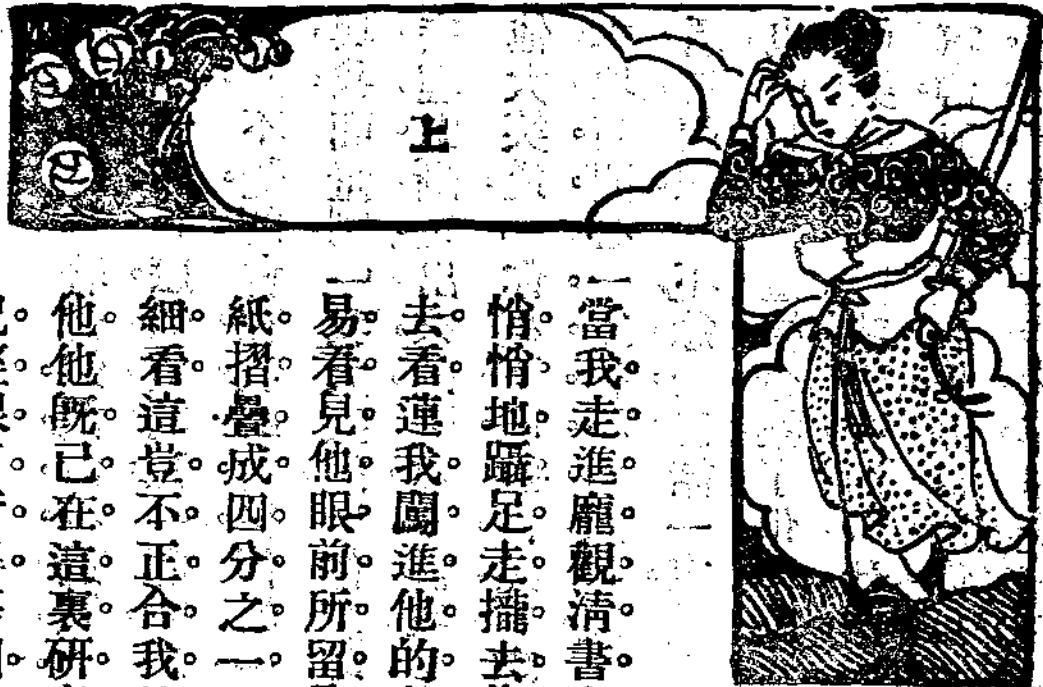 上
一
當我走進龐觀淸書
悄悄地躡足走攏去
去看連我闖進他的
易看見他眼前所留
紙摺疊成四分之一
細看這豈不正合我
他他既已在這裏研